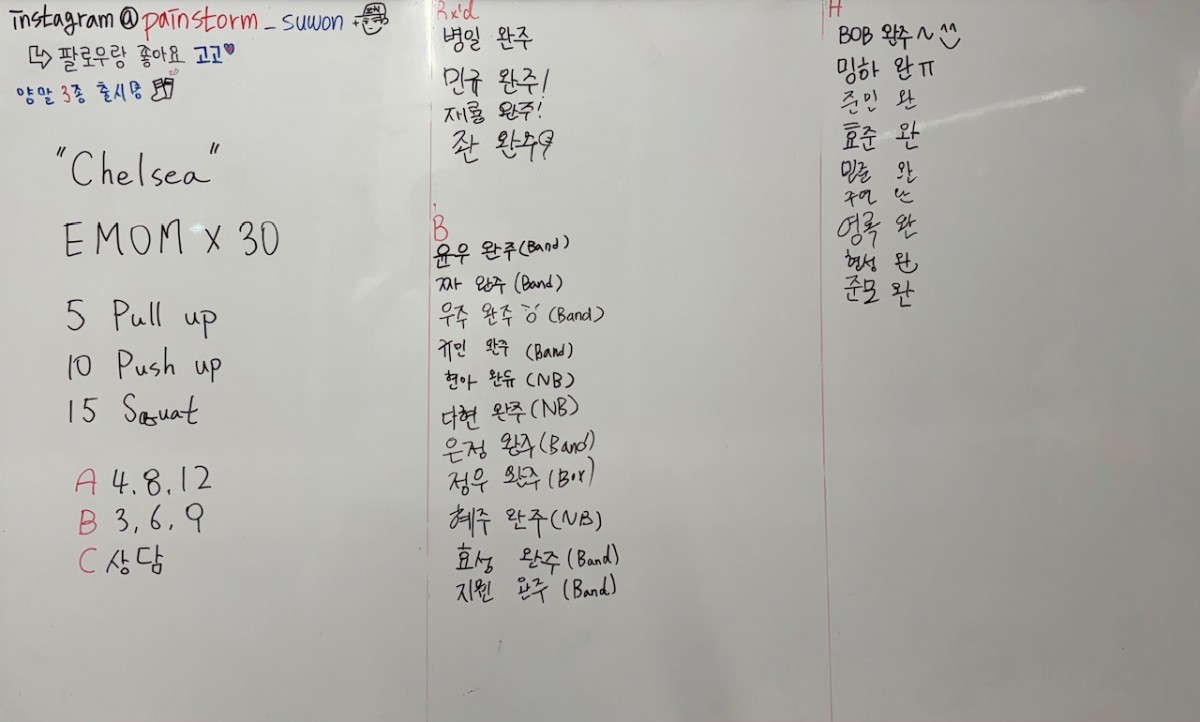 instagram@painstorm_suwon
팔로우랑 좋아요 고고
양말 3종 출시
"Chelsea"
EMOM X 30
5 Pull up
10 Push up
15 Squat
A 4.8.12
B 3,6,9
C 상담
Rx'd
병일 완주
민규 완주!
재룡 완주!
좐 완주?
B
윤우 완주(Band)
짜 완주(Band)
우주 완주 ㅎ (Band)
규민 완주 (Band)
현아 완듀 (NB)
다현 완주(NB)
은정 완주(Band)
정우 완주(Box)
혜주 완주(NB)
효성 완주(Band)
지원 완주 (Band)
A
BOB 완주~^^
밍하 완ㅠ
준민 완
효준 완
민준 완
주연
영록 완
현성 완
준모 완